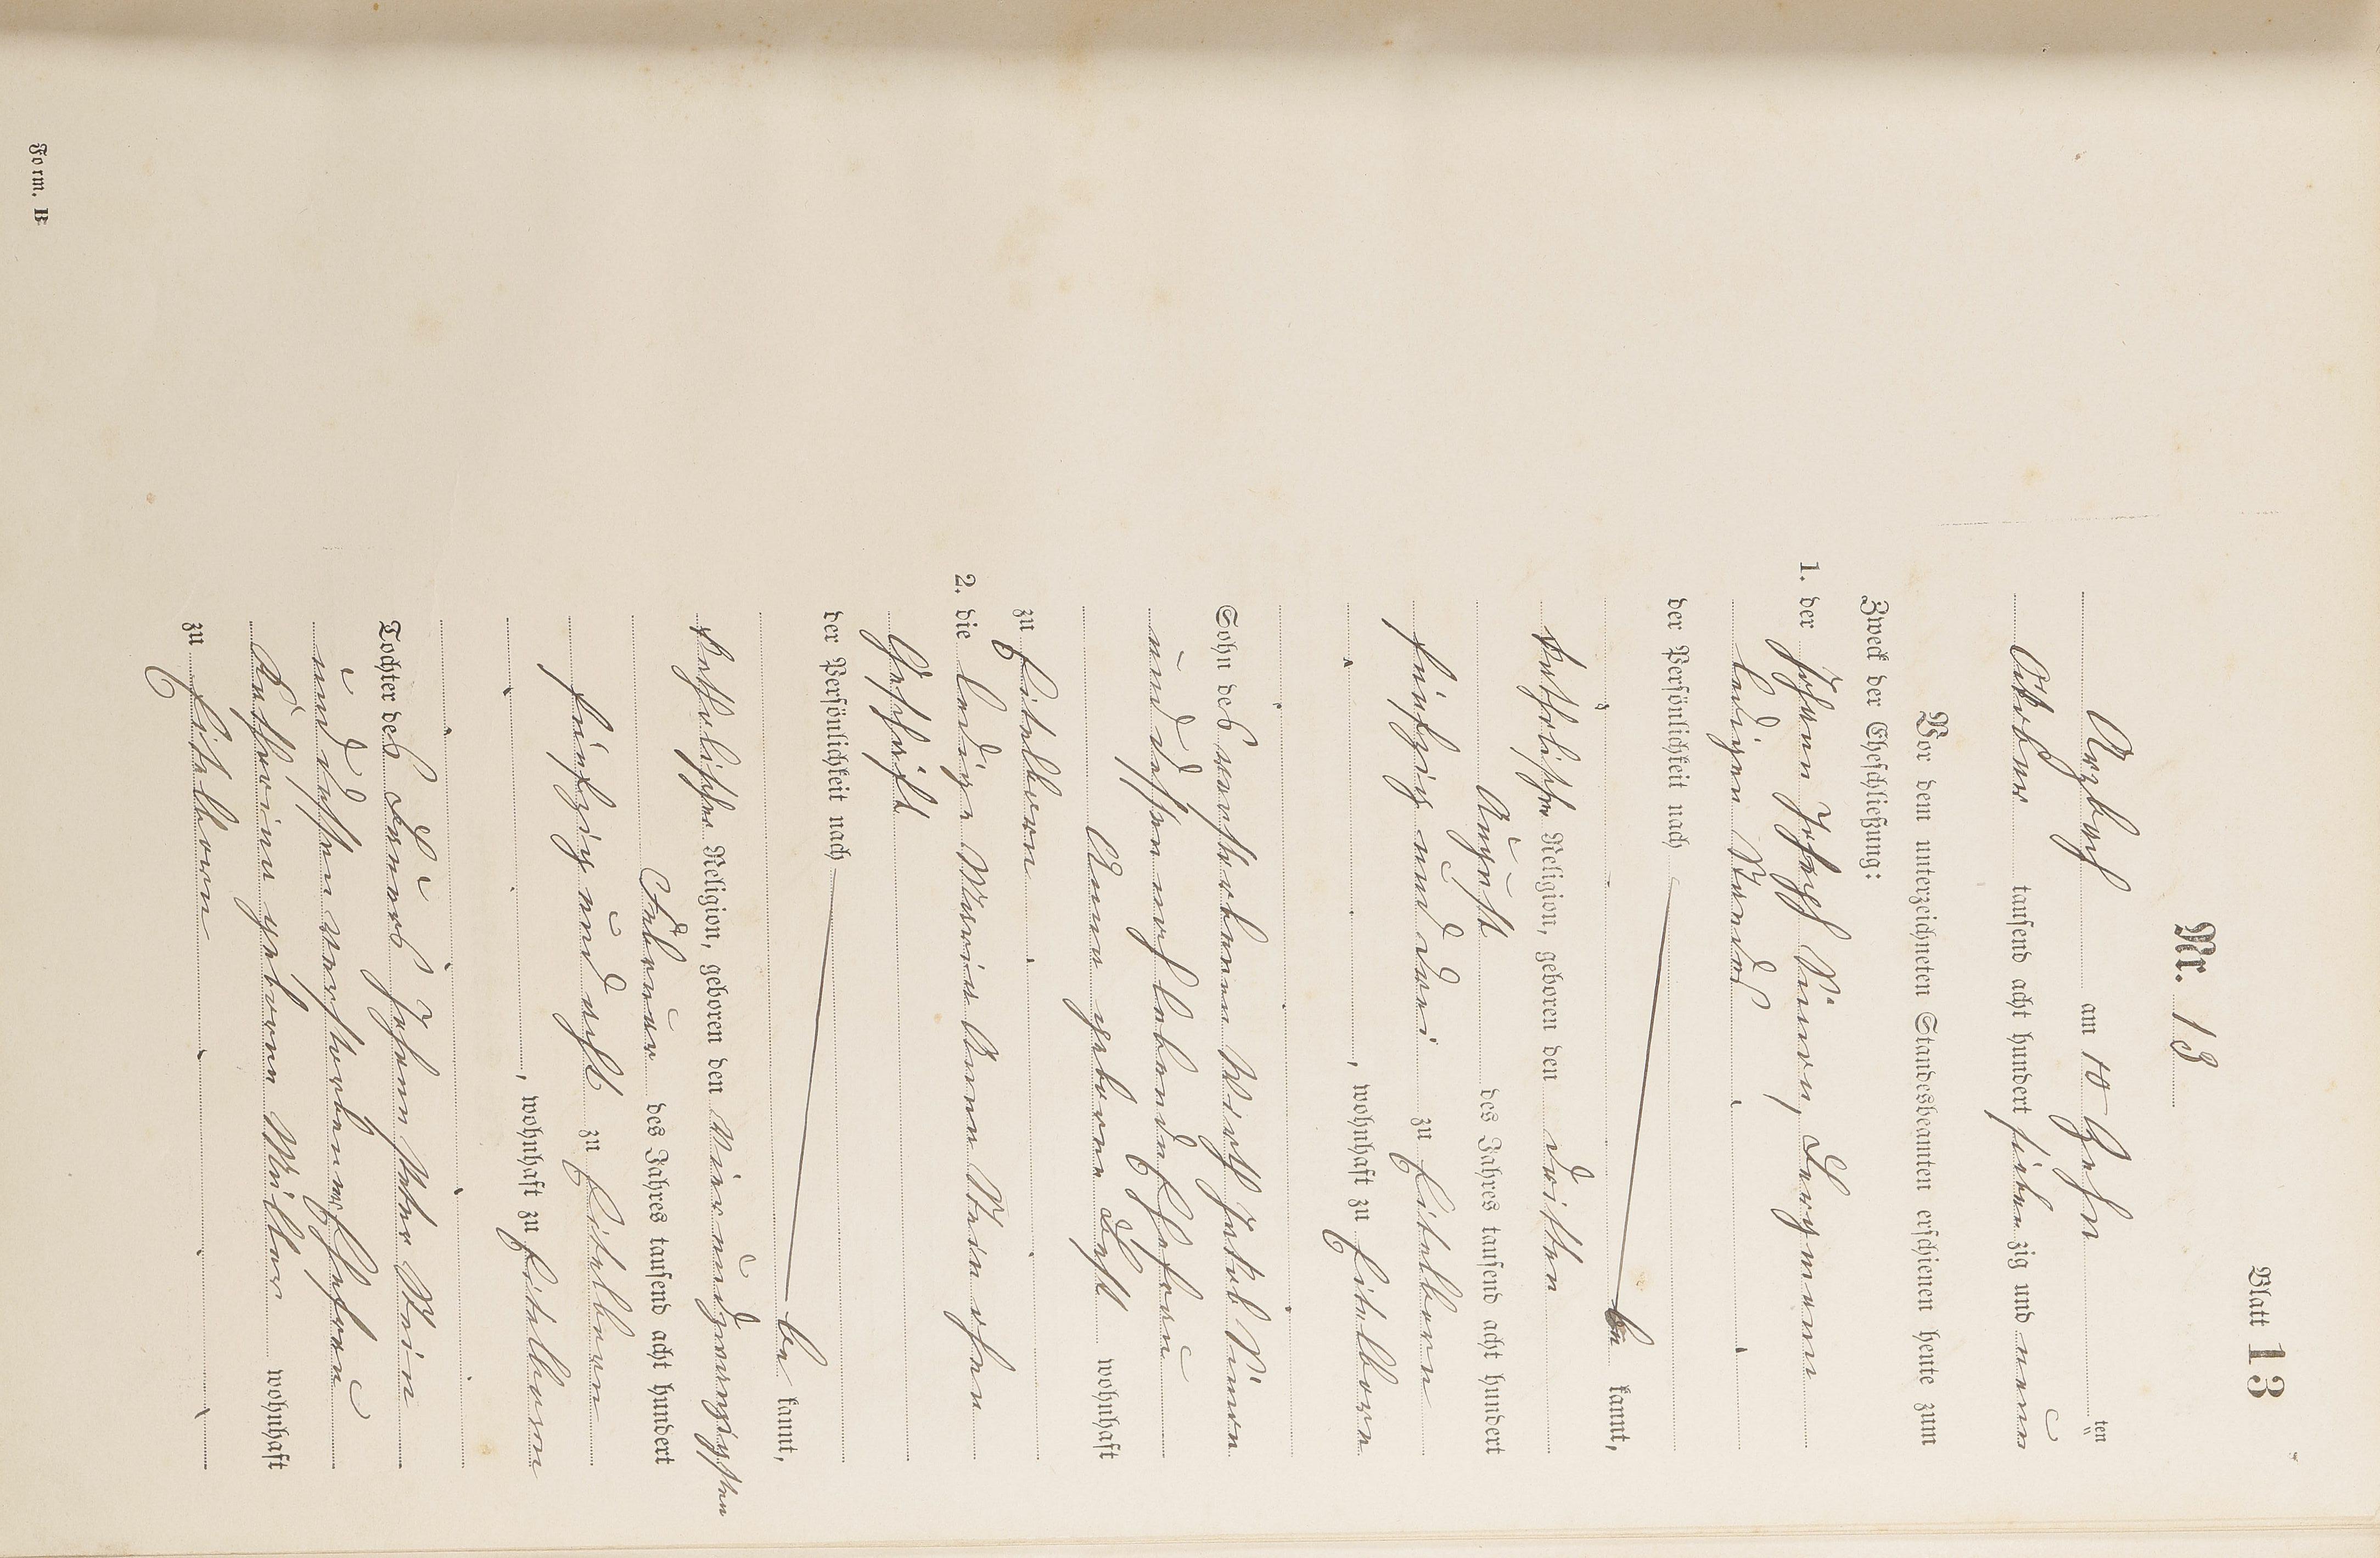 Blatt 13
Nr. 13
Arzbach am 10 Zehn ten
Oktober tausend acht hundert siebenzig und neun
Vor dem unterzeichneten Standesbeamten erschienen heute zum
Zweck der Eheschließung:
1. der Johann Joseph Bergmann
ledigen Standes
der Persönlichkeit nach
be kannt,
katholischer Religion, geboren den dritten
August des Jahres tausend acht hundert
fünfzig und drei zu Eitelborn
, wohnhaft zu Eitelborn
Sohn des verstorbenen Jakob
und dessen noch lebende Ehefrau
Anna geborne wohnhaft
zu Eitelborn
2. die ledige Maria Anna ohne
Geschäft
der Persönlichkeit nach
be kannt,
katholischer Religion, geboren den vierundzwanzigsten
Februar des Jahres tausend acht hundert
fünfzig und acht zu Eitelborn
, wohnhaft zu Eitelborn
Tochter des Johann Peter
und dessen verstorbenen Ehefrau
Katharina geborne Müller wohnhaft
zu Eitelborn
Form. B